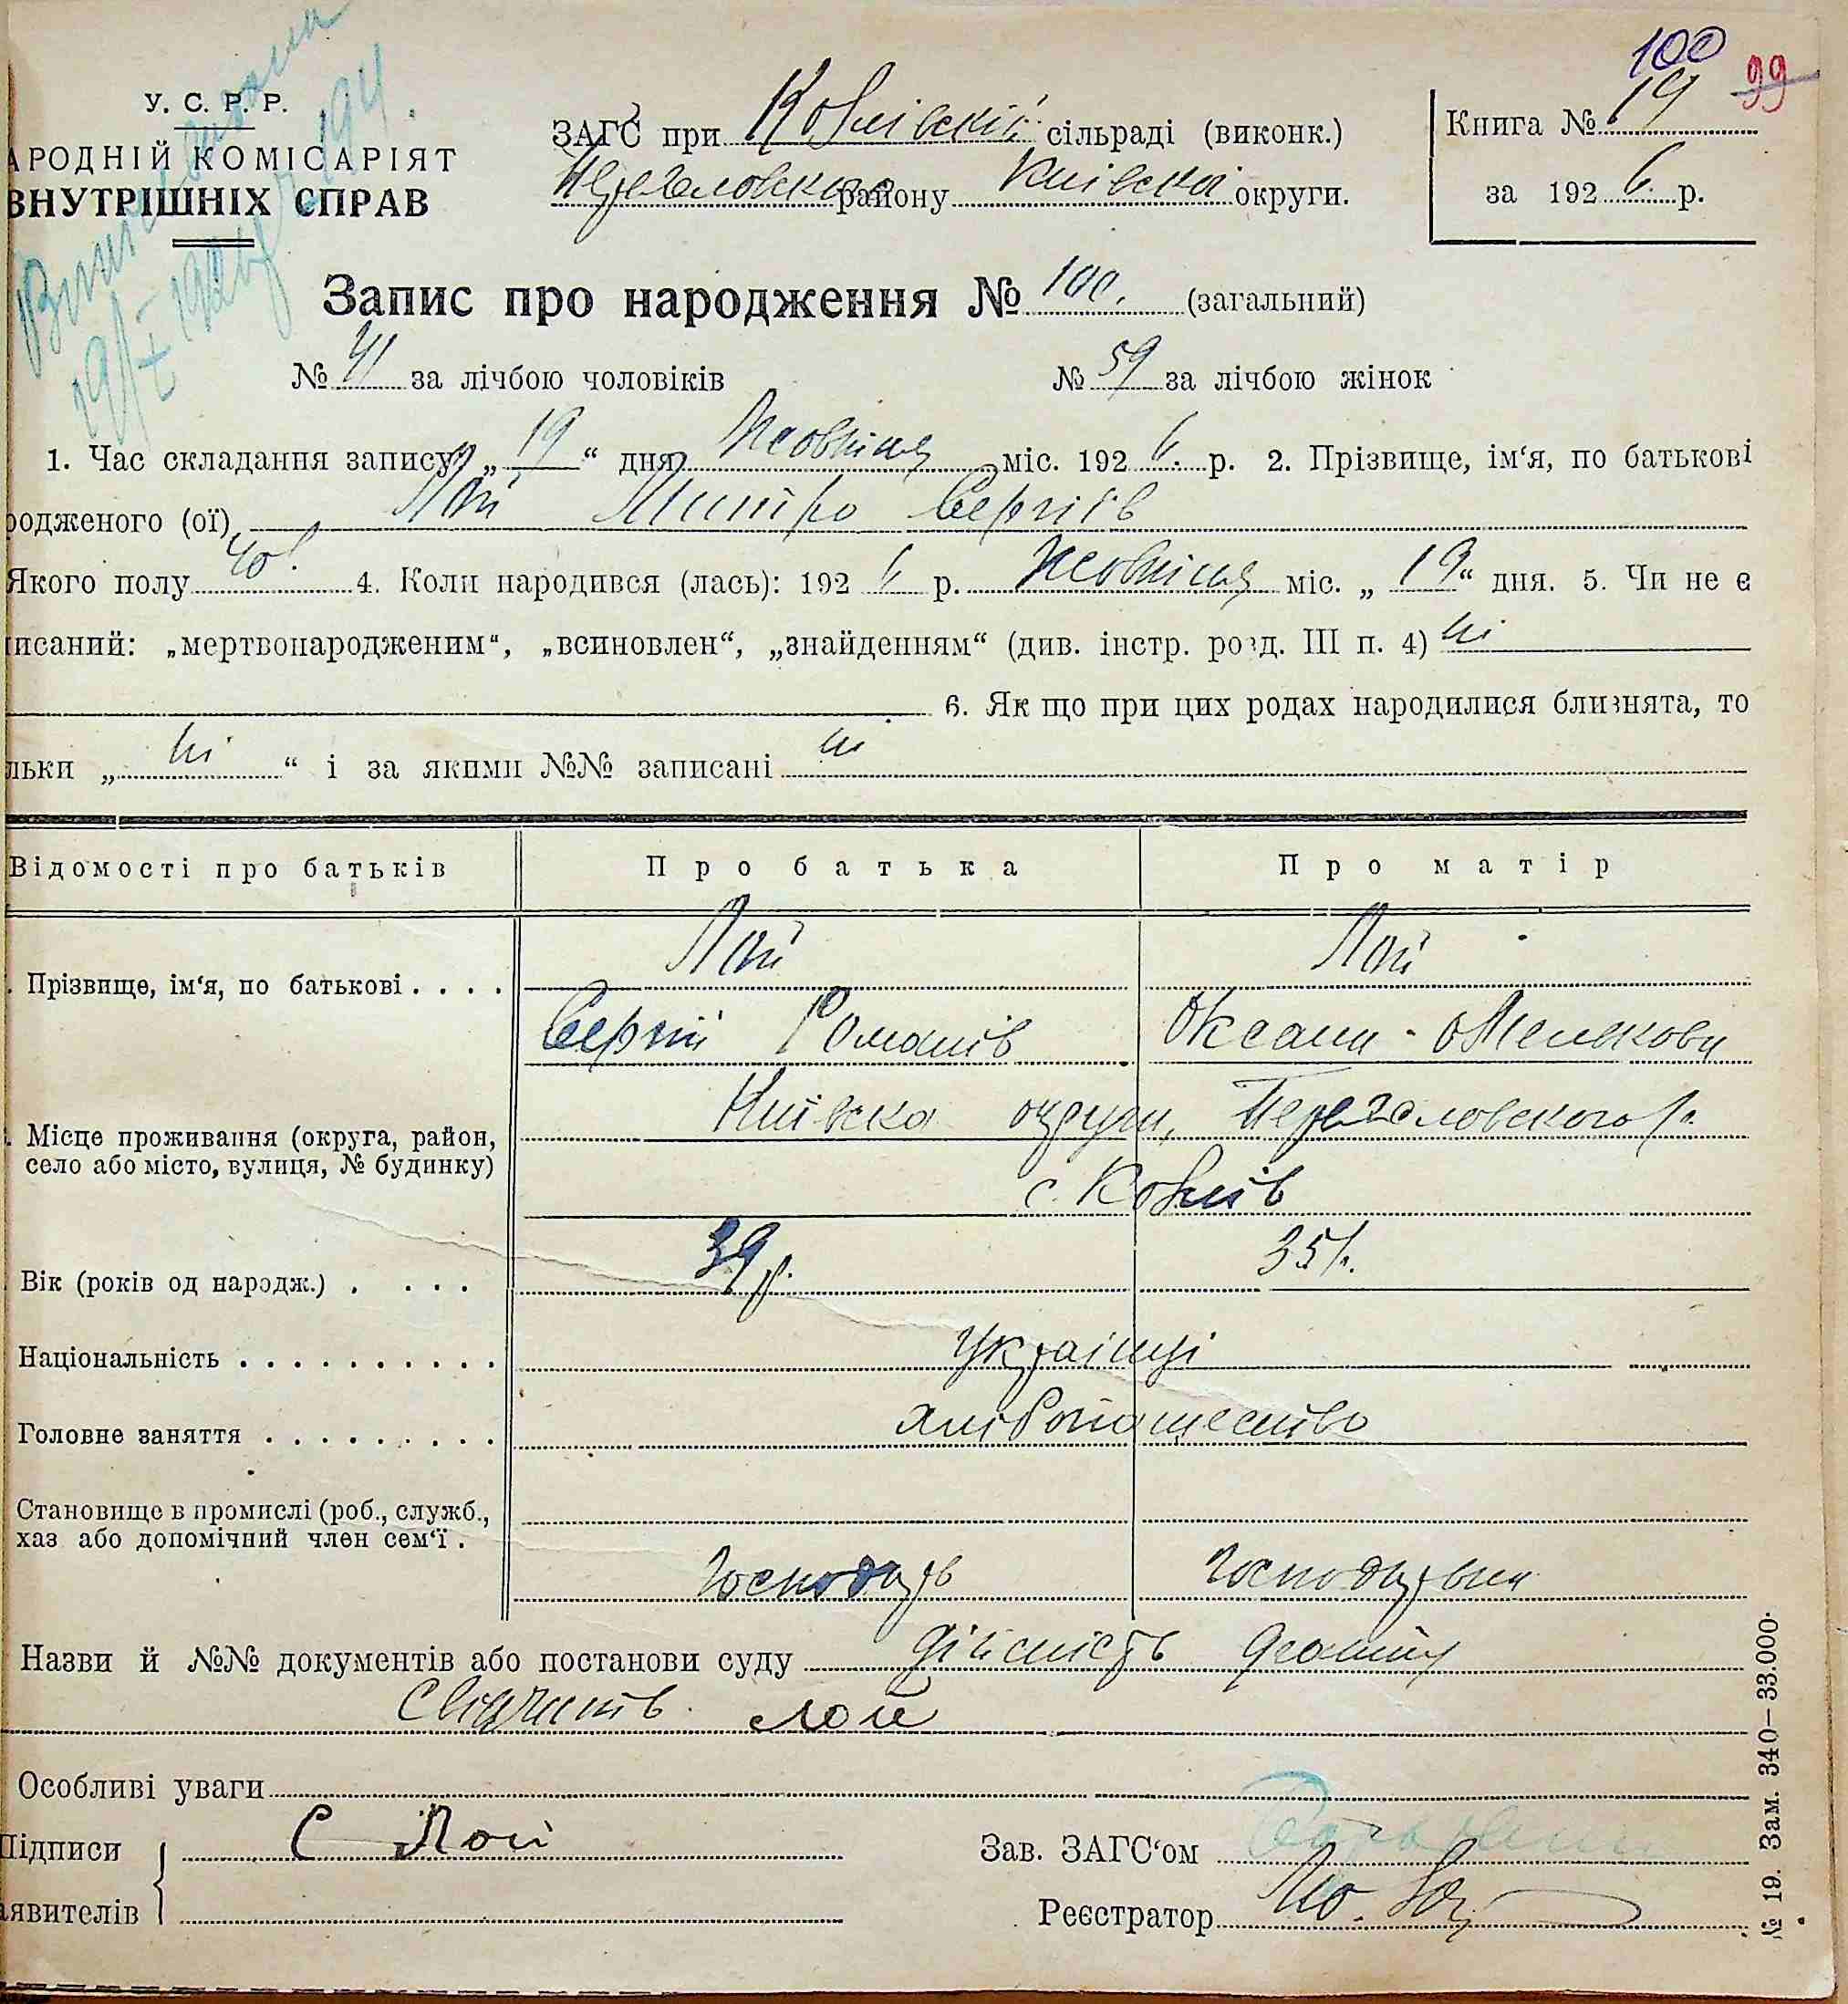 100
99
У. С. Р. Р.
АРОДНІЙ КОМІСАРІЯТ
ВНУТРІШНІХ СПРАВ
ЗАГС при Ковнівскій сільраді (виконк.)
району Київскої округи.
Книга № 19
за 1926 р.
Запис про народження № 100. (загальний)
№ 41 за лічбою чоловіків № 59 за лічбою жінок
1. Час складання запису „19“ дня Жовтня міс. 1926. р. 2. Прізвище, ім‘я, по батькові
родженого (ої) Лой Митро Сергіїв
Якого полу чо. 4. Коли народився (лась): 1926 р. Жовтня міс. „19“ дня. 5. Чи не є
исаний: „мертвонародженим“, „всиновлен“, „знайденням“ (див. інстр. розд. III п. 4) ні
6. Як що при цих родах народилися близнята, то
льки „ ні “ і за якими №№ записані ні
Відомості про батьків Про батька Про матір
Прізвище, ім‘я, по батькові . . . . Лой Лой
Сергій Романів Оксана Омелькова
Місце проживання (округа, район, село або місто, вулиця, № будинку) Київска округи, р.
с.
Вік (років од народж.) . . . . 39 р. 35 р.
Національність . . . . . . . . . . Українці
Головне заняття . . . . . . . . . хліборобство
Становище в промислі (роб., служб.,
хаз або допомічний член сем‘ї .
Господарь Господарька
Назви й №№ документів або постанови суду дійсність
свідчить Лой
Особливі уваги
Підписи С Лой Зав. ЗАГС‘ом
аявителів Реєстратор
№ 19. Зам. 340—33.000.